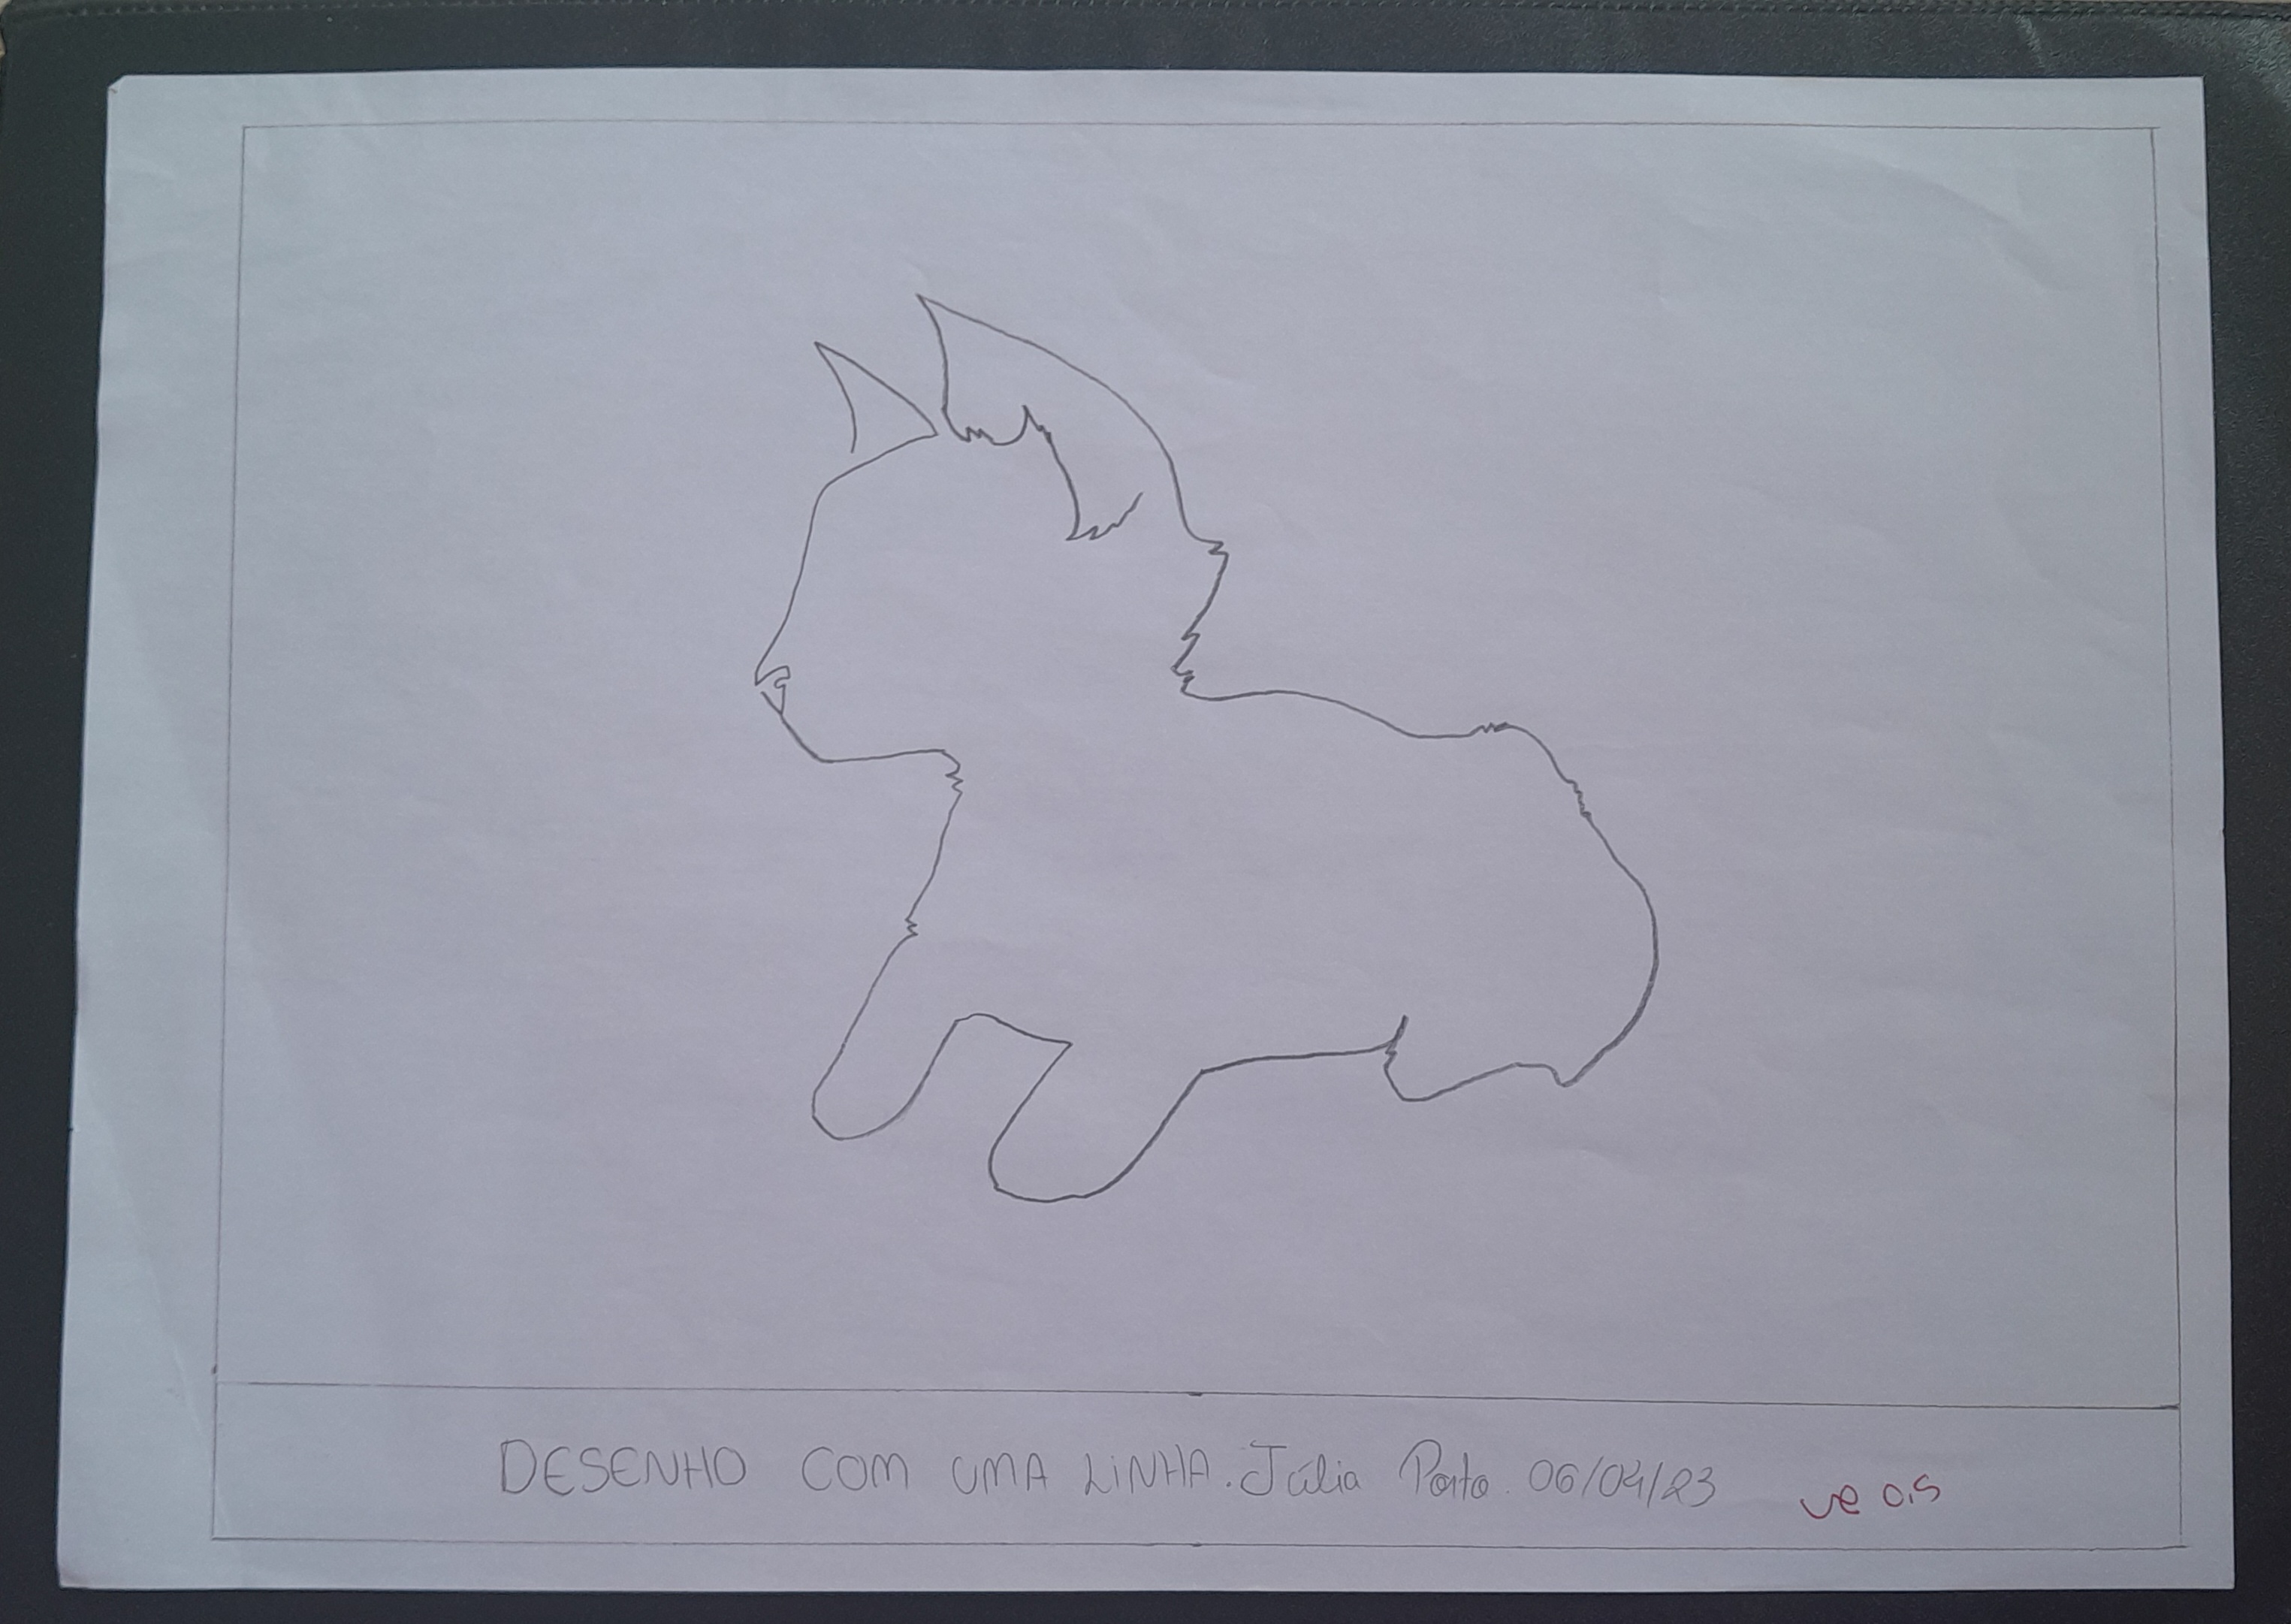 DESENHO COM UMA LINHA. Júlia Porto. 06/04/23 ve 0,5